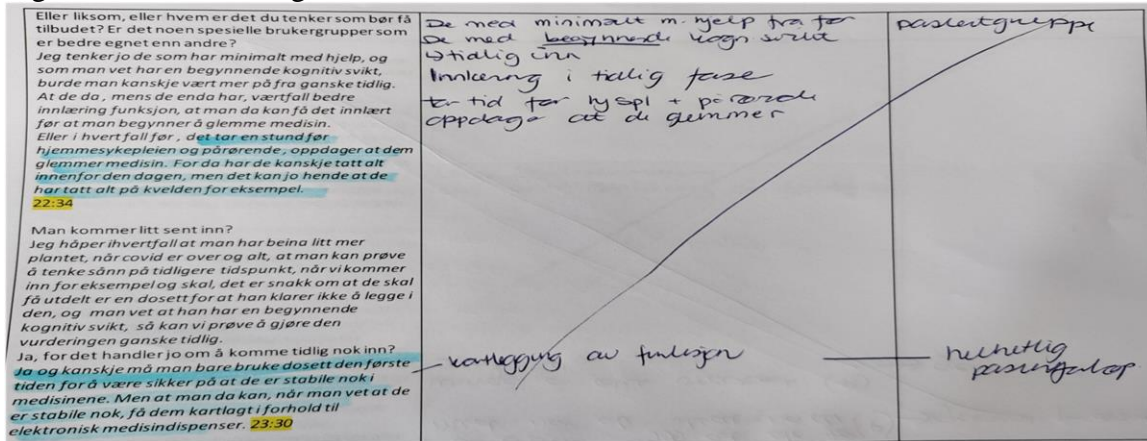 Eller liksom, eller hvem er det du tenker som bør få
tilbudet? Er det noen spesielle brukergrupper som
er bedre egnet enn andre?
Jeg tenker jo de som har minimalt med hjelp, og
som man vet har en begynnende kognitiv svikt,
burde man kanskje vært mer på fra ganske tidlig.
At de da , mens de enda har, værtfall bedre
innlæring funksjon, at man da kan få det innlært
før at man begynner å glemme medisin.
Eller i hvert fall før , det tar en stund før
hjemmesykepleien og pårørende , oppdager at dem
glemmer medisin. For da har de kanskje tatt alt
innenfor den dagen, men det kan jo hende at de
har tatt alt på kvelden for eksempel.
22:34
Man kommer litt sent inn?
Jeg håper ihvertfall at man har beina litt mer
plantet, når covid er over og alt, at man kan prøve
å tenke sånn på tidligere tidspunkt, når vi kommer
inn for eksempel og skal, det er snakk om at de skal
få utdelt er en dosett for at han klarer ikke å legge i
den, og man vet at han har en begynnende
kognitiv svikt, så kan vi prøve å gjøre den
vurderingen ganske tidlig.
Ja, for det handler jo om å komme tidlig nok inn?
Ja og kanskje må man bare bruke dosett den første
tiden for å være sikker på at de er stabile nok i
medisinene. Men at man da kan, når man vet at de
er stabile nok, få dem kartlagt i forhold til
elektronisk medisindispenser. 23:30
De med minimalt m. hjelp fra før
De med begynnende kogn svikt
tidlig inn
Innlæring i tidlig fase
tar tid før hyspl + pårørende
oppdager at de glemmer
kartlegging av funksjon
pasientgruppe
helhetlig
pasientforløp